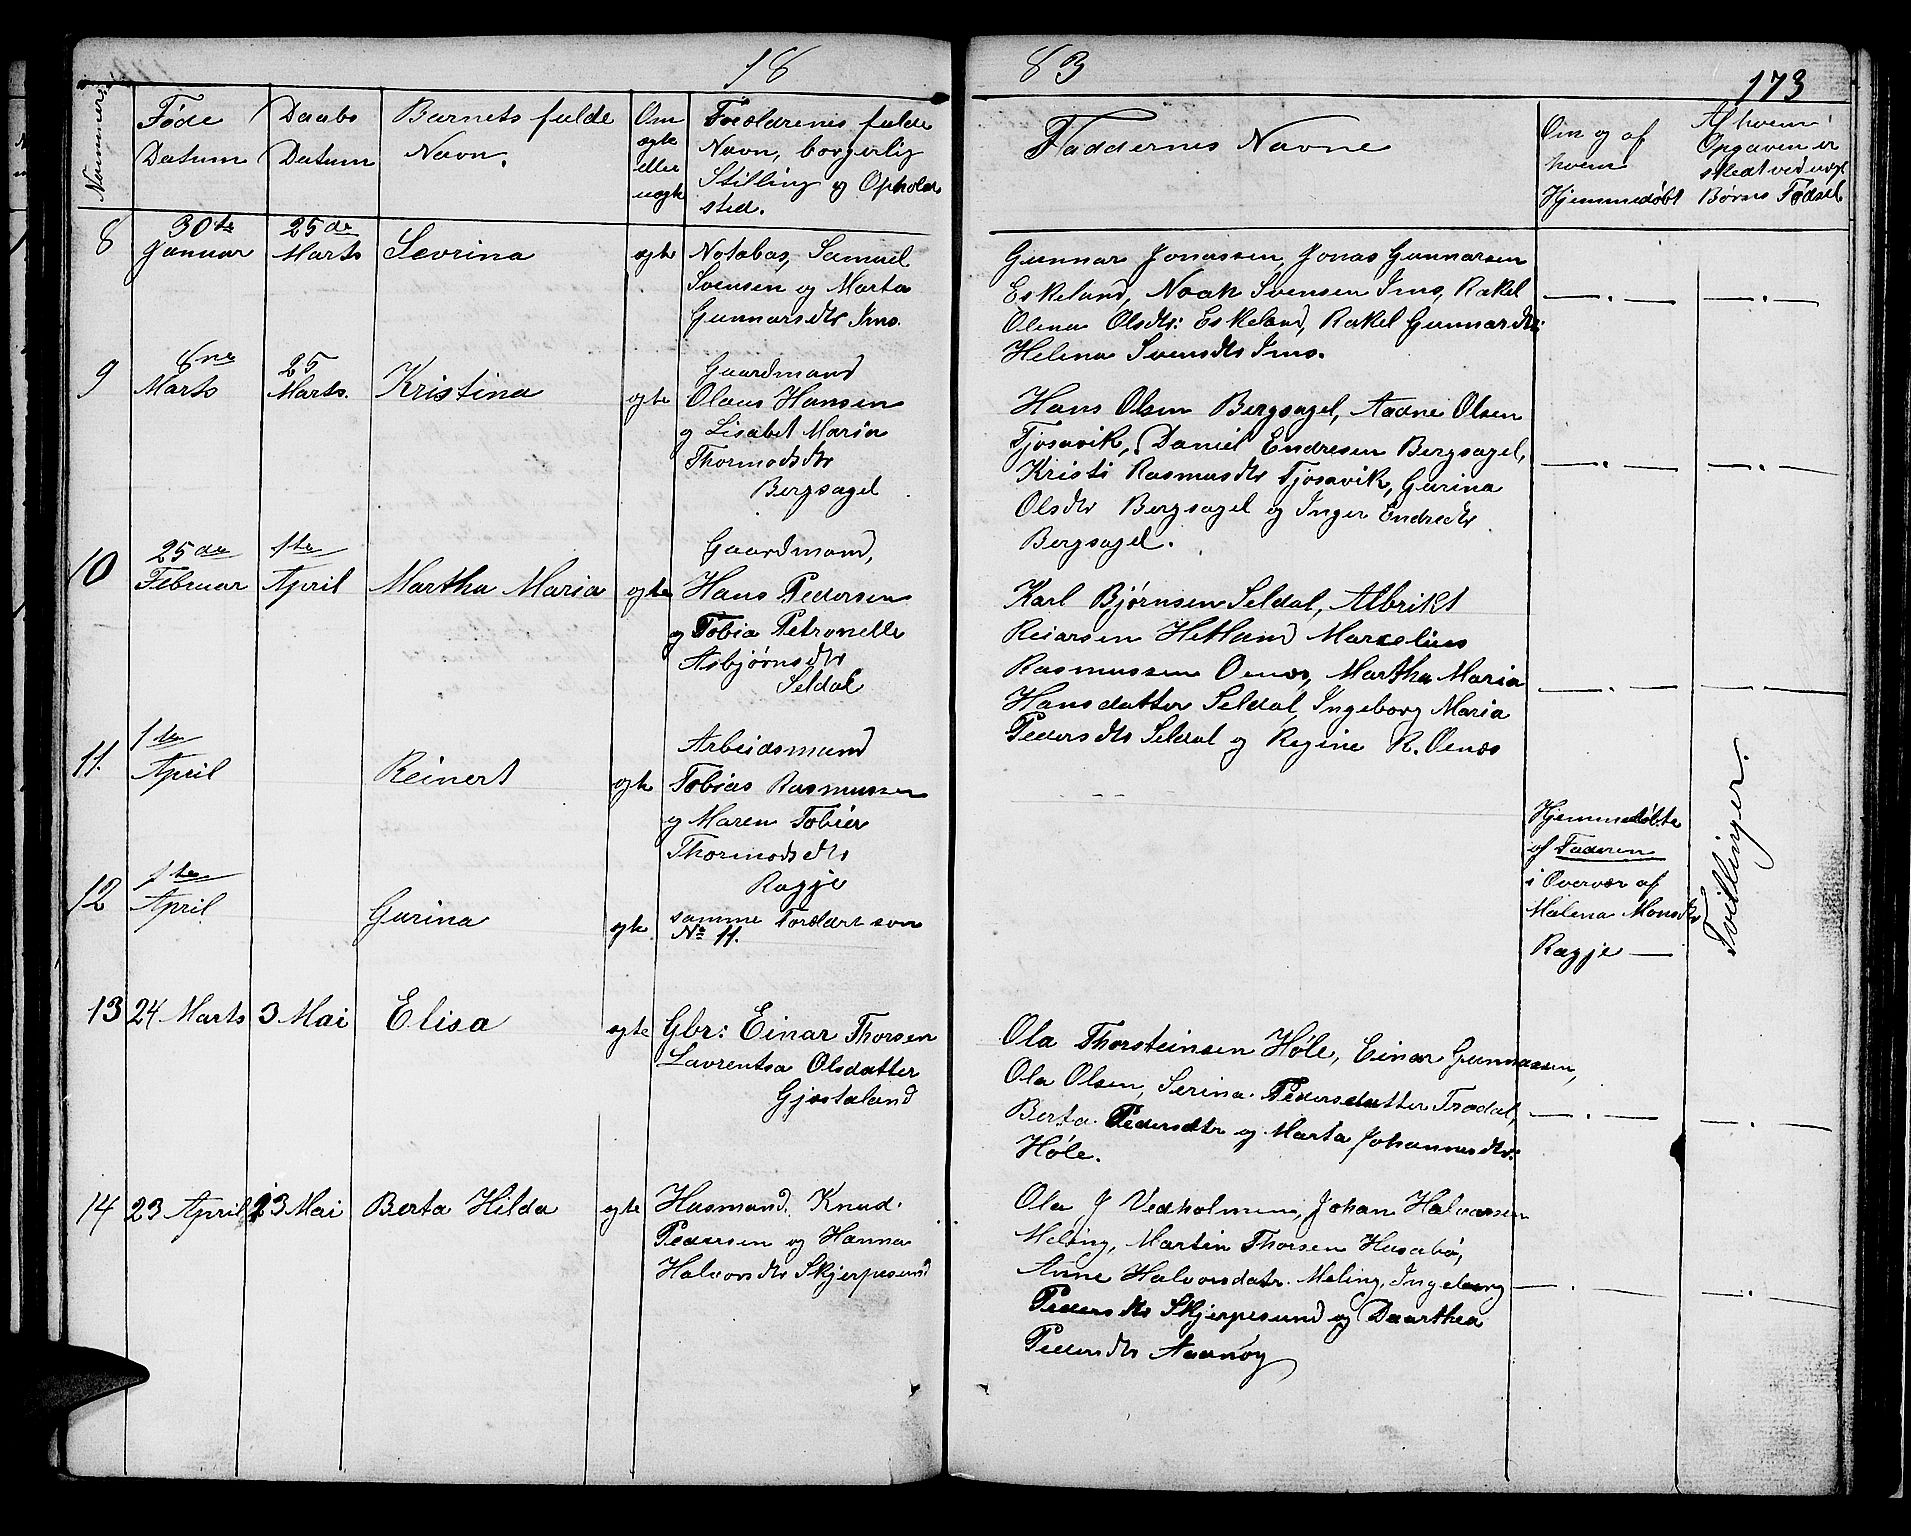 18 83
173
Nummer
Føde Datum
Daabs Datum
Barnets fulde Navn.
Om ægte eller uægte
Forældrenes fulde
Navn, borgerlig
Stilling og Opholds
sted.
Faddernes Navne
Om og af
hvem
Hjemmedøbt
Af hvem
Opgaven er
skedt ved uægt
Børns Fødsel
8 30te Januar 25de Marts Sevrina ægte
Notebas, Samuel
Svensen og Marta
Gunnarsdtr Ims.
Gunnar Jonassen, Jonas Gunnarsen
Eskeland, Noah Svensen Ims, Rakel
Olena Olsdtr: Eskeland, Rakel Gunnardtr:
Helena Svensdtr Ims.
9 8ne Marts 25 Marts. Kristina ægte
Gaardmand
Olaus Hansen
og Lisabet Maria
Thormodsdtr
Bergsagel
Hans Olsen Bergsagel, Aadne Olsen
Tjosavik, Daniel Endresen Bergsagel,
Kristi Rasmusdtr Tjosavik, Gurina
Olsdtr Bergsagel og Inger Endredtr
Bergsagel.
10 25de Februar 1te April Martha Maria ægte
Gaardmand,
Hans Pedersen
og Tobia Petronelle
Asbjørnsdtr
Seldal
Karl Bjørnsen Seldal, Albrikt
Reiarsen Hetland Marcelius
Rasmussen Oenæs, Martha Maria
Hansdatter Seldal, Ingeborg Maria
Pedersdtr Seldal og Regine R. Oenæs
11. 1te April Reinert ægte
Arbeidsmand
Tobias Rasmussen
og Maren Tobier
Thormodsdtr
Ragje
12 1te April Gurina ægte.
samme Forældre som
No 11.
Hjemmedøbte
af Faderen
i Overvær af
Malena Monsdtr
Ragje
Tvillinger.
13 24 Marts 3 Mai Elisa ægte
Gbr: Einar Thorsen
Lavrentsa Olsdatter
Gjestaland
Ola Thorsteinsen Høle, Einar Gunnarsen,
Ola Olsen, Serina Pedersdatter Trædal,
Berta Pedersdtr og Marta Johannesdtr:
Høle.
14 23 April 23 Mai Berta Hilda ægte
Husmand. Knud
Pedersen og Hanna
Halvorsdtr Skjørpesund
Ola J Vedholmen, Johan Halvorsen
Meling, Martin Thorsen Husabø,
Anne Halvorsdatr. Meling, Ingeborg
Pedersdtr Skjørpesund og Daarthea
Pedersdtr Aarnøy